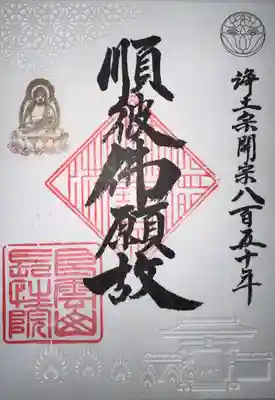 浄土宗開宗八百五十年
順彼佛願故
雲山
性院